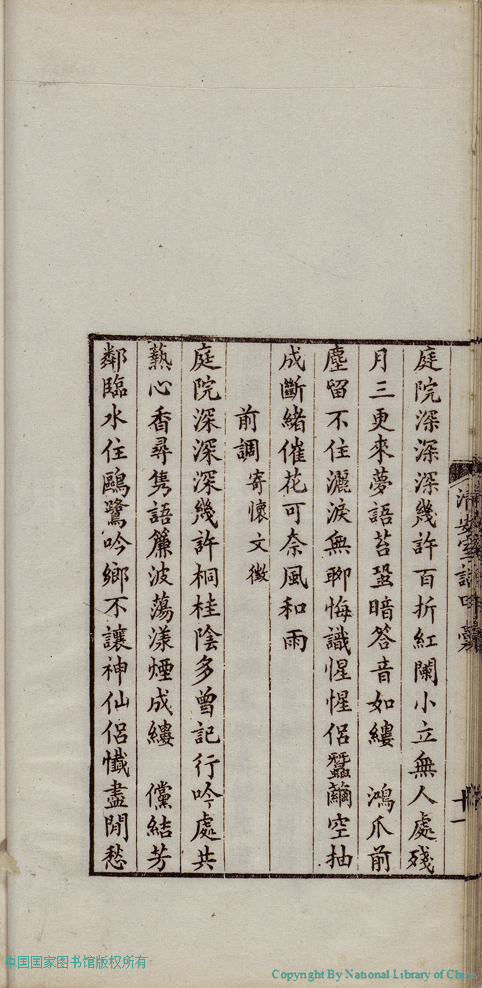 庭院深深深幾許百折紅闌小立無人處殘
月三更來夢語苔蛩暗答音如縷　鴻爪前
塵留不住灑淚無聊悔識惺惺侶蠶繭空抽
成斷緒催花可奈風和雨
前調 寄懷文徵
庭院深深深幾許桐桂陰多曾記行吟處共
爇心香尋雋語簾波蕩漾煙成縷　儻結芳
鄰臨水住鷗鷺吟鄉不讓神仙侶懺盡閒愁
中国国家图书馆版权所有
Copyright By National Library of China